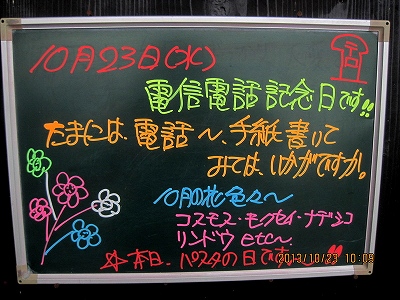 10月23日(水)
電信電話記念日です!!
たまには、電話〜、手紙書いて
みては、いかがですか。
10月の花色々〜
コスモス・モクセイ・ナデシコ
リンドウ etc〜
☆本日、パスタの日です〜!!
2013/10/23 10:05